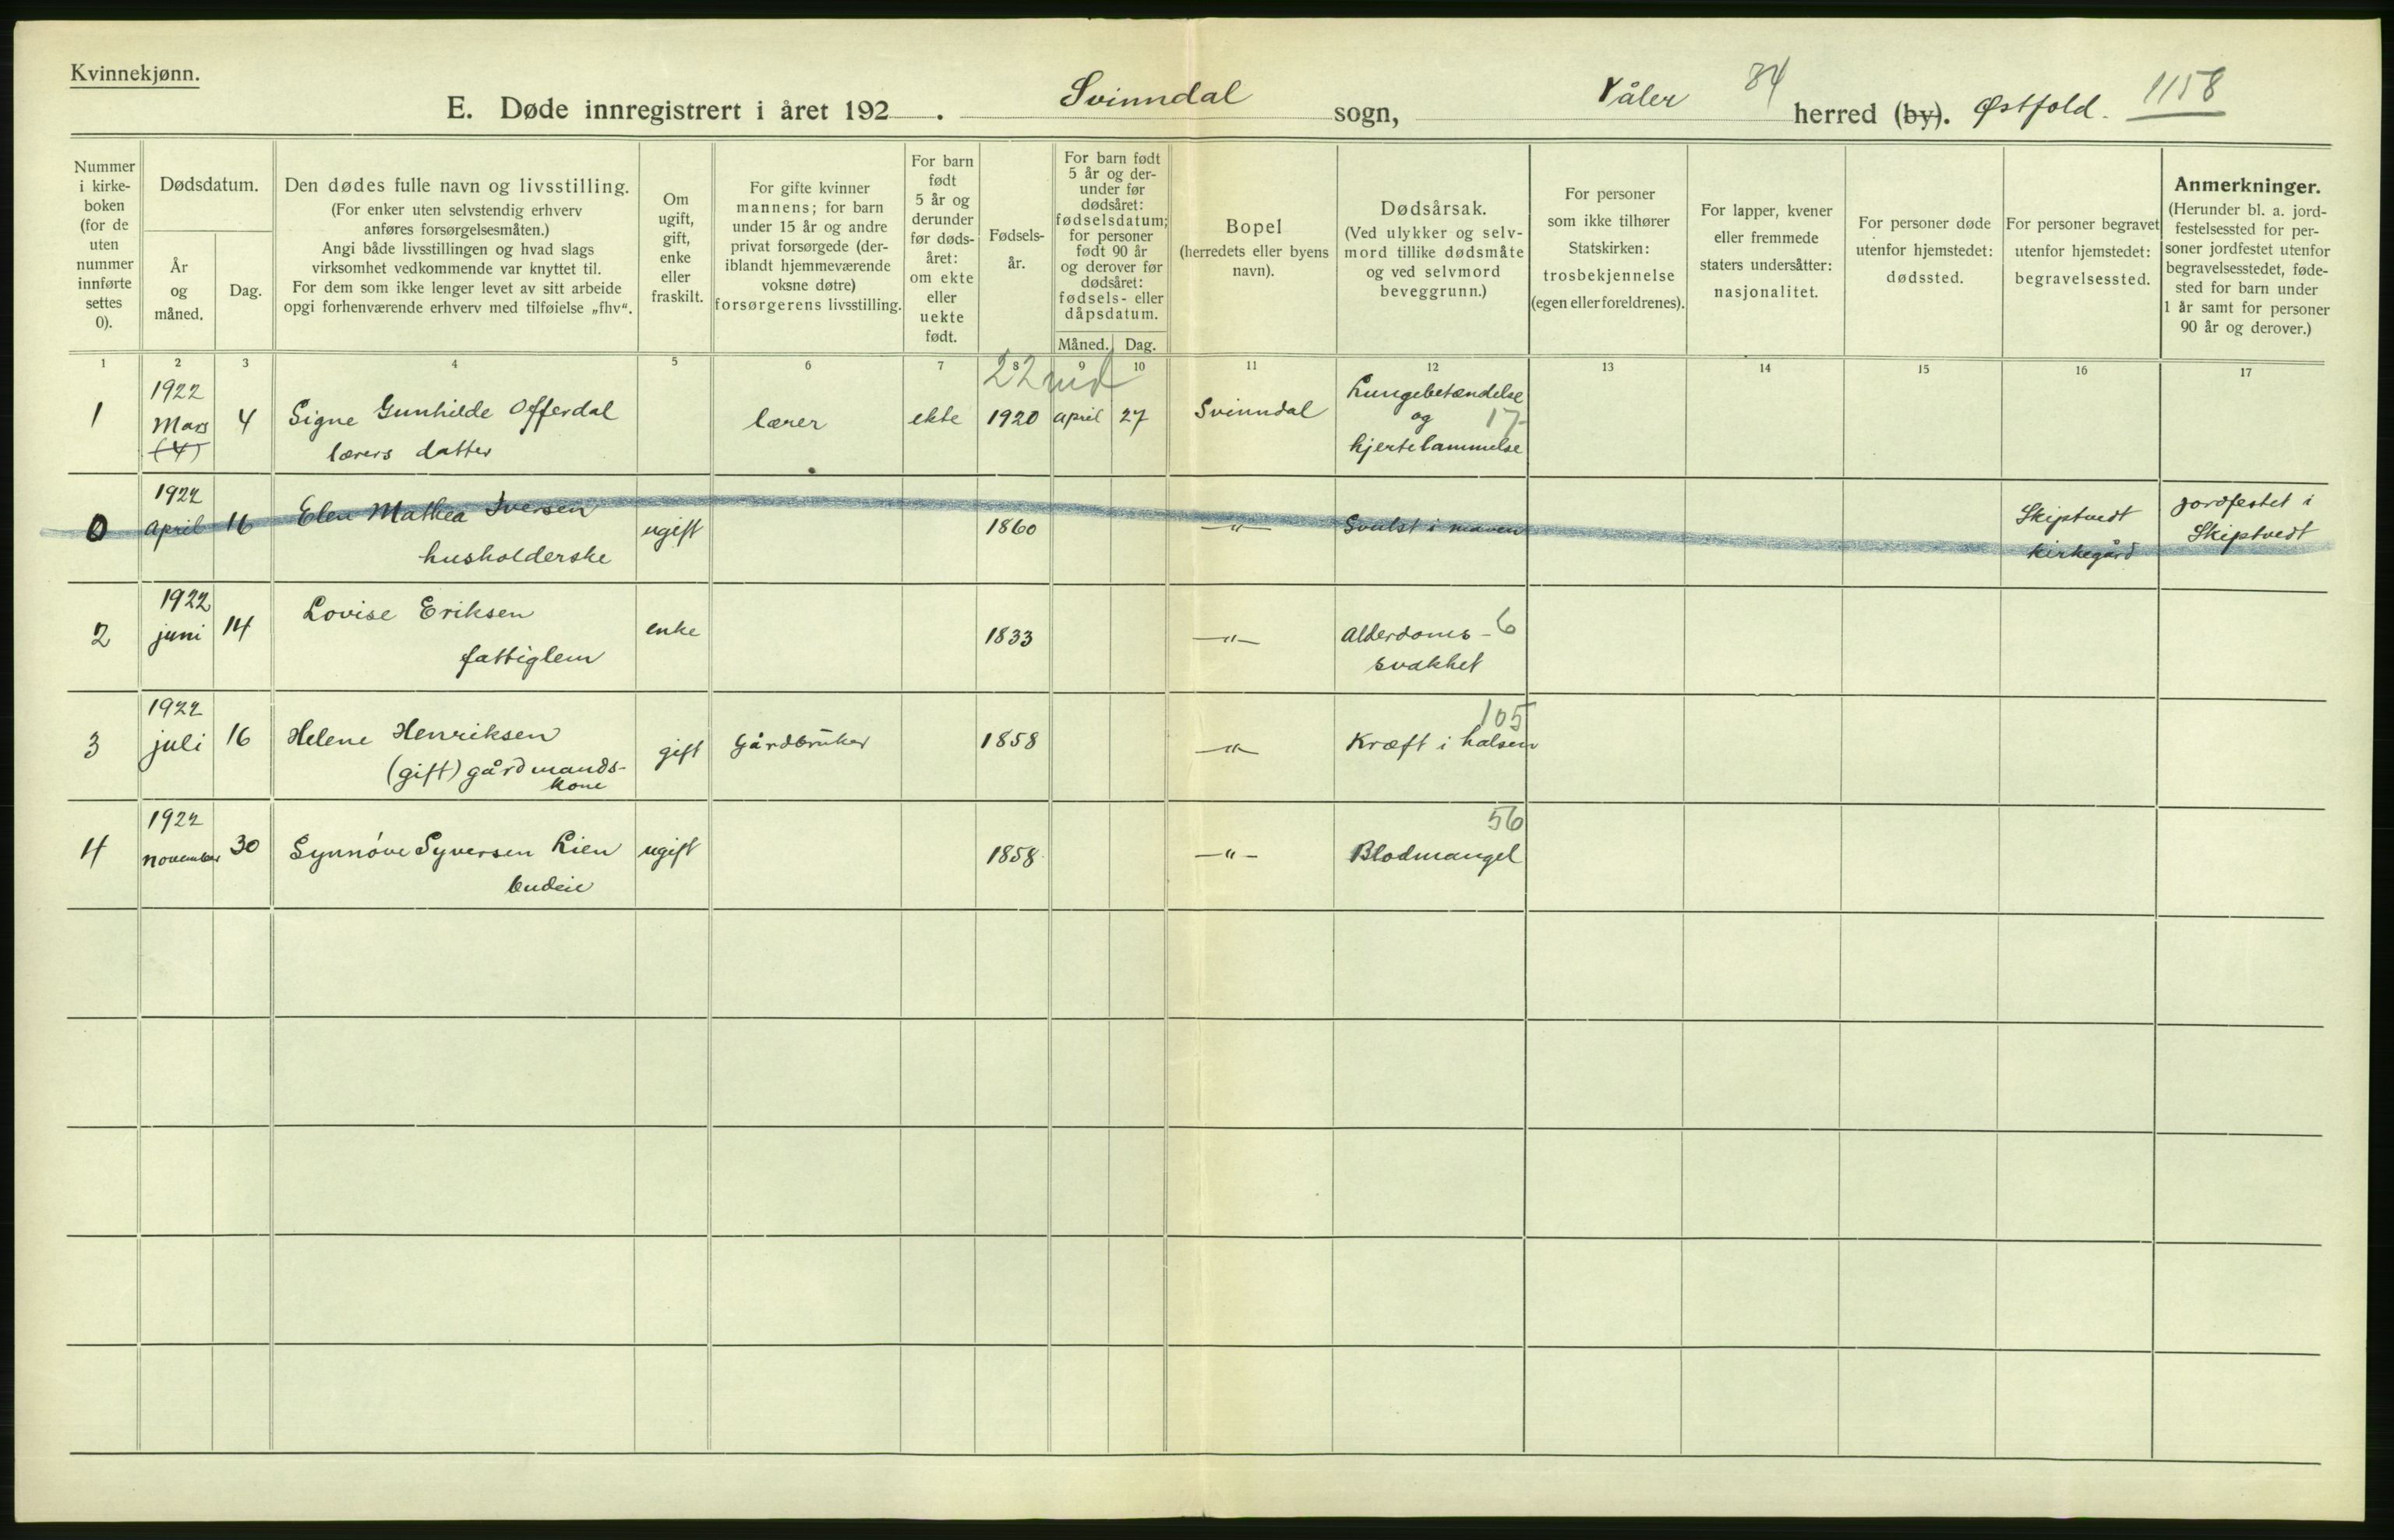 Kvinnekjønn.
E. Døde innregistrert i året 192 . Svinndal sogn, Våler 84 herred (by). Østfold. 1158
Nummer i kirke-boken (for de uten nummer innførte settes 0).
Dødsdatum.
År og måned.
Dag.
Den dødes fulle navn og livsstilling.
(For enker uten selvstendig erhverv
anføres forsørgelsesmåten.)
Angi både livsstillingen og hvad slags
virksomhet vedkommende var knyttet til.
For dem som ikke lenger levet av sitt arbeide
opgi forhenværende erhverv med tilføielse „fhv“.
Om
ugift,
gift,
enke
eller
fraskilt.
For gifte kvinner
mannens; for barn
under 15 år og andre
privat forsørgede (der-
iblandt hjemmeværende
voksne døtre)
forsørgerens livsstilling.
For barn
født
5 år og
derunder
før døds-
året:
om ekte
eller
uekte
født.
Fødsels-
år.
For barn født
5 år og der-
under før
dødsåret:
fødselsdatum;
for personer
født 90 år
og derover før
dødsåret:
fødsels- eller
dåpsdatum.
Måned. Dag.
Bopel
(herredets eller byens
navn).
Dødsårsak.
(Ved ulykker og selv-
mord tillike dødsmåte
og ved selvmord
beveggrunn.)
For personer
som ikke tilhører
Statskirken:
trosbekjennelse
(egen eller foreldrenes).
For lapper, kvener
eller fremmede
staters undersåtter:
nasjonalitet.
For personer døde
utenfor hjemstedet:
dødssted.
For personer begravet
utenfor hjemstedet:
begravelsessted.
Anmerkninger.
(Herunder bl. a. jord-
festelsessted for per-
soner jordfestet utenfor
begravelsesstedet, føde-
sted for barn under
1 år samt for personer
90 år og derover.)
1 2 3 4 5 6 7 8 9 10 11 12 13 14 15 16 17
22 md
1 1922 Mars (4) 4 Signe Gunhilde Offerdal
lærers datter
lærer ekte 1920 april 27 Svinndal
Lungebetændelse
og 17
hjertelammelse
0 1922 April 16 Elen Mathea Iversen
husholderske
ugift 1860 —"— Svulst i maven
Skiptvedt
kirkegård
Jordfestet i
Skiptvedt
2 1922 juni 14 Lovise Eriksen
fattiglem
enke 1833 —"— Alderdoms- 6
svakhet
3 1922 juli 16 Helene Henriksen
(gift) gårdmands-
kone
gift Gårdbruker 1858 —"— 105
Kræft i halsen
4 1922 november 30 Synnöve Syversen Lien
budeie
ugift 1858 —"— 56
Blodmangel